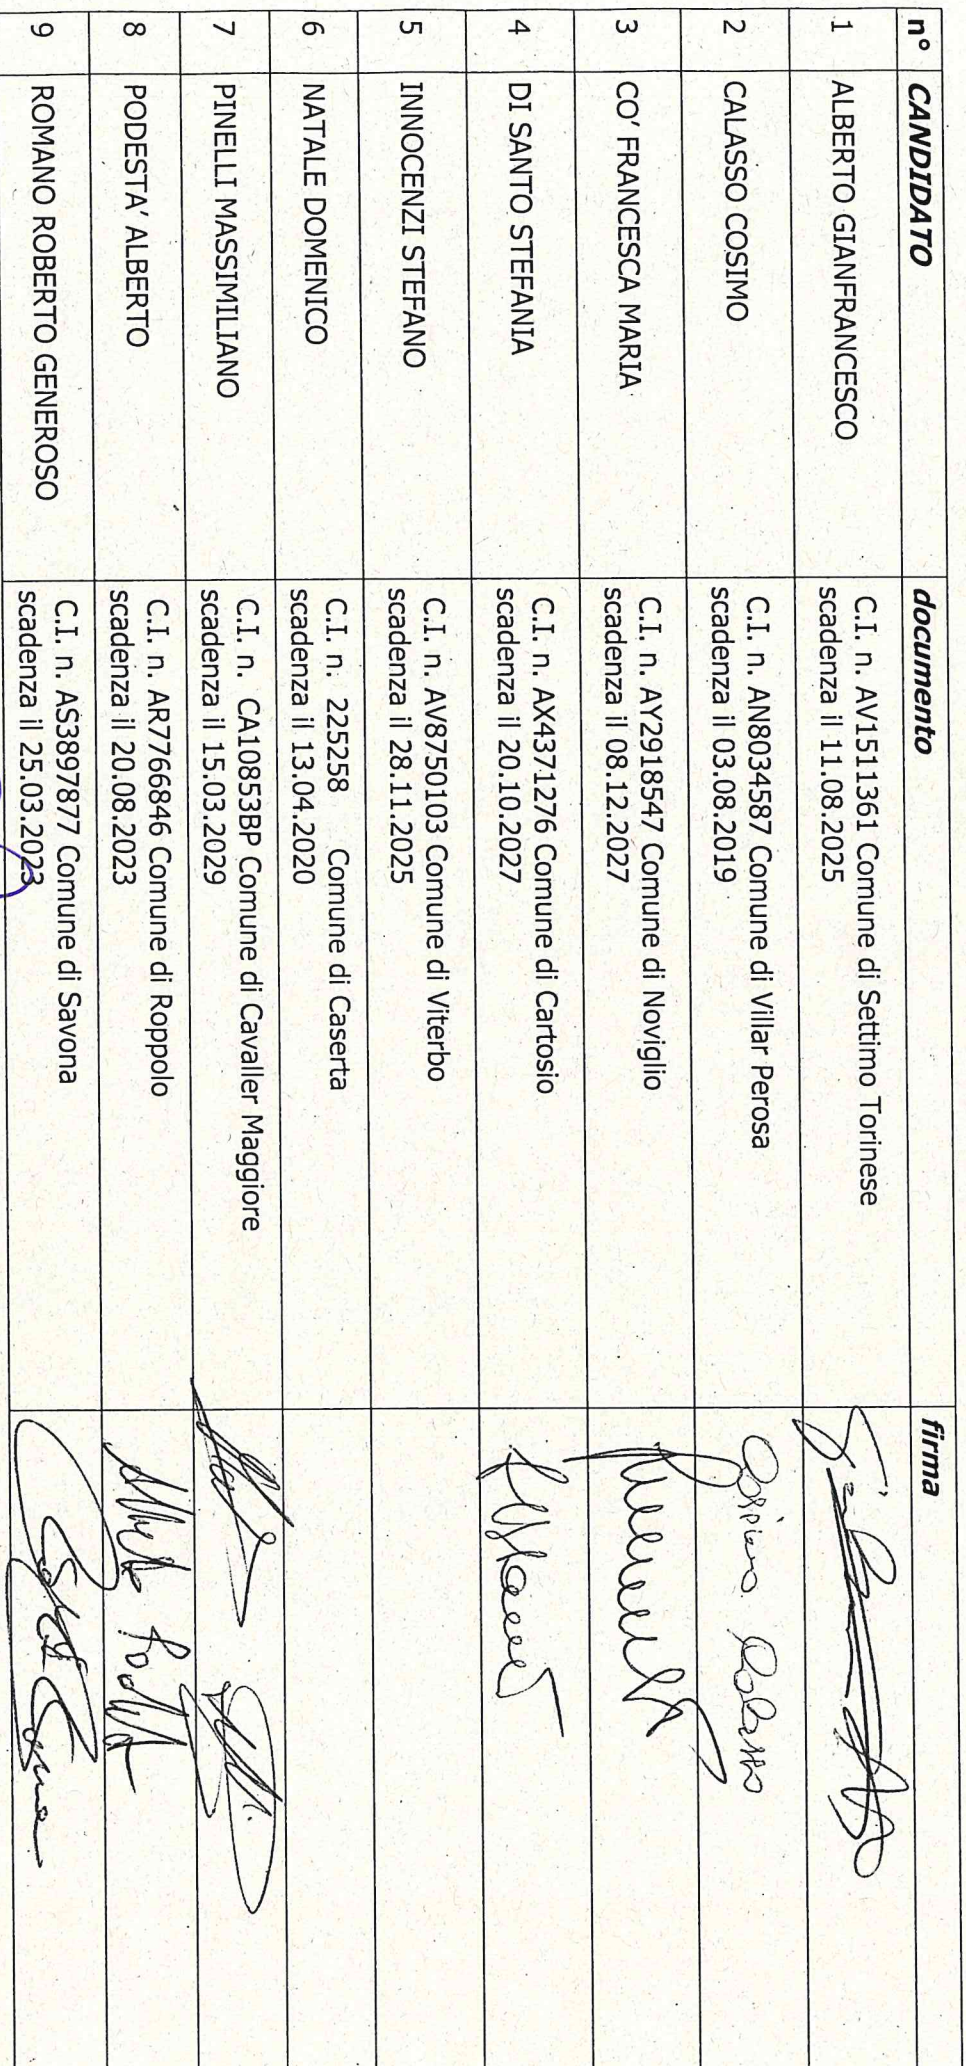 n° CANDIDATO documento firma
1 ALBERTO GIANFRANCESCO C.I. n. AV1511361 Comune di Settimo Torinese
scadenza il 11.08.2025
2 CALASSO COSIMO C.I. n. AN8034587 Comune di Villar Perosa
scadenza il 03.08.2019
3 CO' FRANCESCA MARIA C.I. n. AY2918547 Comune di Noviglio
scadenza il 08.12.2027
4 DI SANTO STEFANIA C.I. n. AX4371276 Comune di Cartosio
scadenza il 20.10.2027
5 INNOCENZI STEFANO C.I. n. AV8750103 Comune di Viterbo
scadenza il 28.11.2025
6 NATALE DOMENICO C.I. n. 225258 Comune di Caserta
scadenza il 13.04.2020
7 PINELLI MASSIMILIANO C.I. n. CA10853BP Comune di Cavaller Maggiore
scadenza il 15.03.2029
8 PODESTA' ALBERTO C.I. n. AR7766846 Comune di Roppolo
scadenza il 20.08.2023
9 ROMANO ROBERTO GENEROSO C.I. n. AS3897877 Comune di Savona
scadenza il 25.03.2023